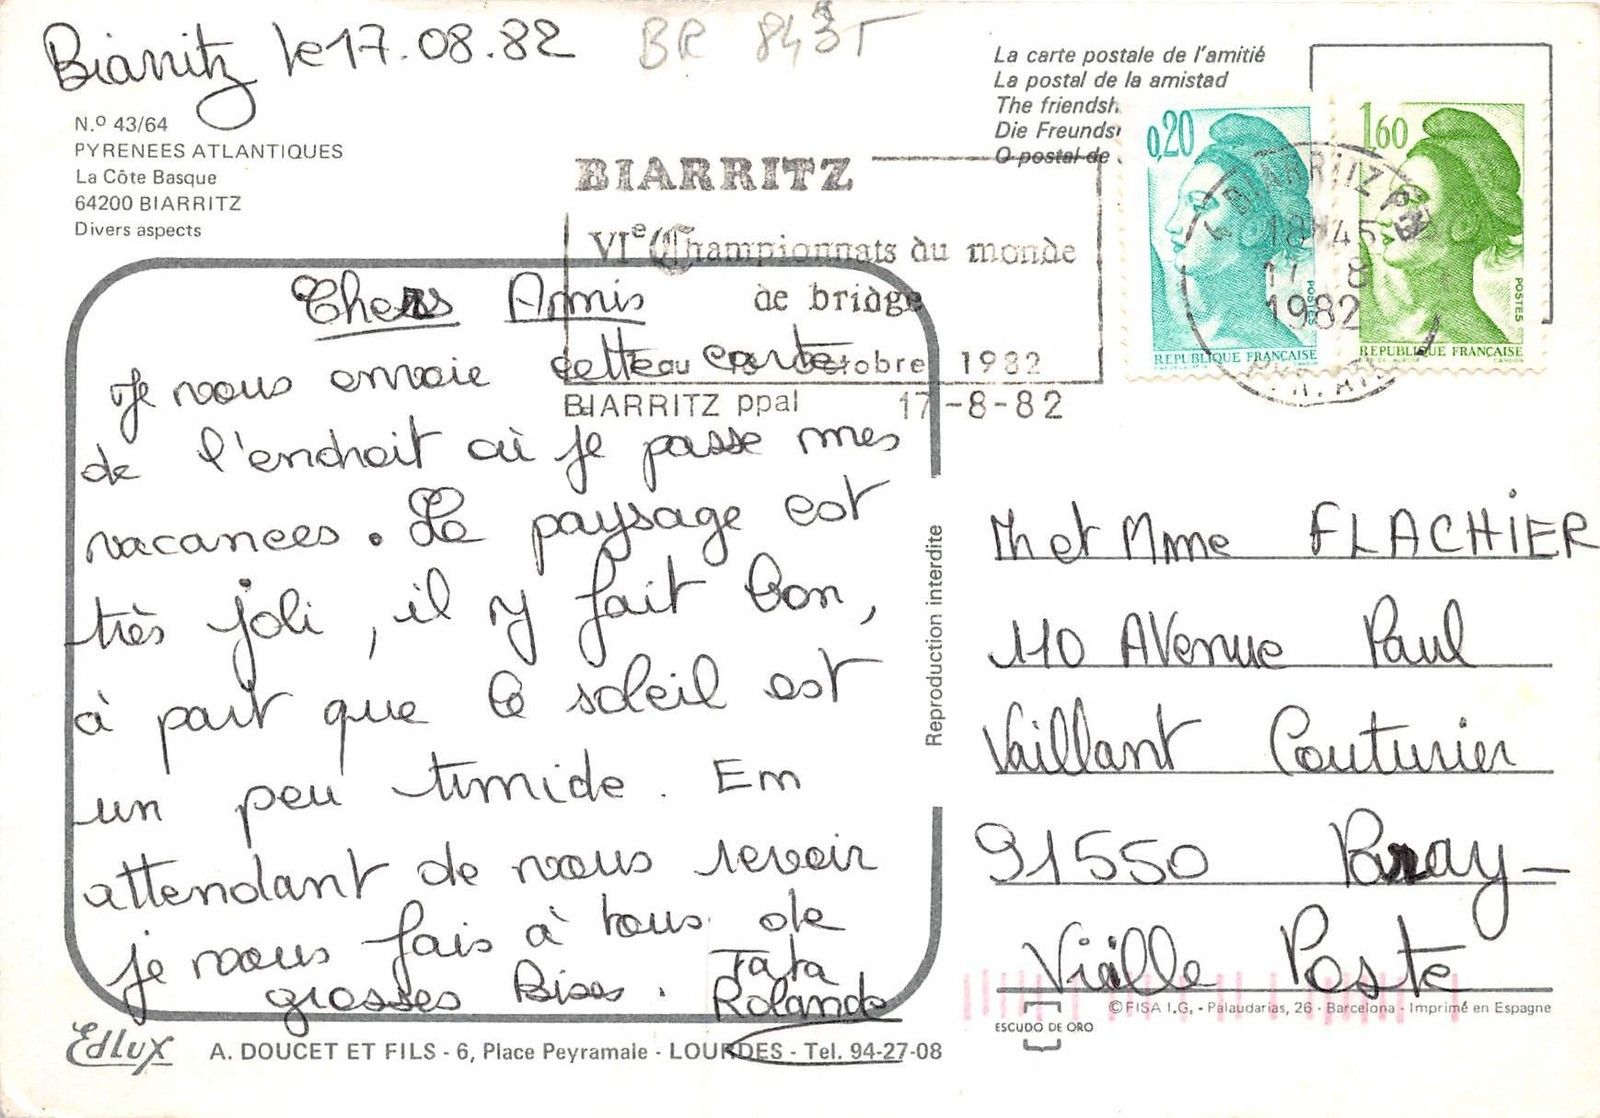 Biarritz le 17.08.82
BR 843T
N.º 43/64
PYRENEES ATLANTIQUES
La Côte Basque
64200 BIARRITZ
Divers aspects
La carte postale de l'amitié
La postal de la amistad
The friendsh
Die Freunds
O postal de
0,20
POSTES
REPUBLIQUE FRANÇAISE
1,60
POSTES
REPUBLIQUE FRANÇAISE
BIARRITZ PPAL
18H45
17-8
1982
BIARRITZ
VIe Championnats du monde
de bridge
au octobre 1982
BIARRITZ ppal 17-8-82
Chers Amis
Je vous envoie cette carte
de l'endroit où je passe mes
vacances. Le paysage est
très joli, il y fait bon,
à part que le soleil est
un peu timide. En
attendant de vous revoir
je vous fais à tous de
grosses Bises.
Tata
Rolande
Reproduction interdite
M et Mme FLACHIER
110 AVenue Paul
Vaillant Couturier
91550 Paray-
Vieille Poste
© FISA I.G. - Palaudarias, 26 - Barcelona - Imprimé en Espagne
ESCUDO DE ORO
EdLux
A. DOUCET ET FILS - 6, Place Peyramale - LOURDES - Tel. 94-27-08